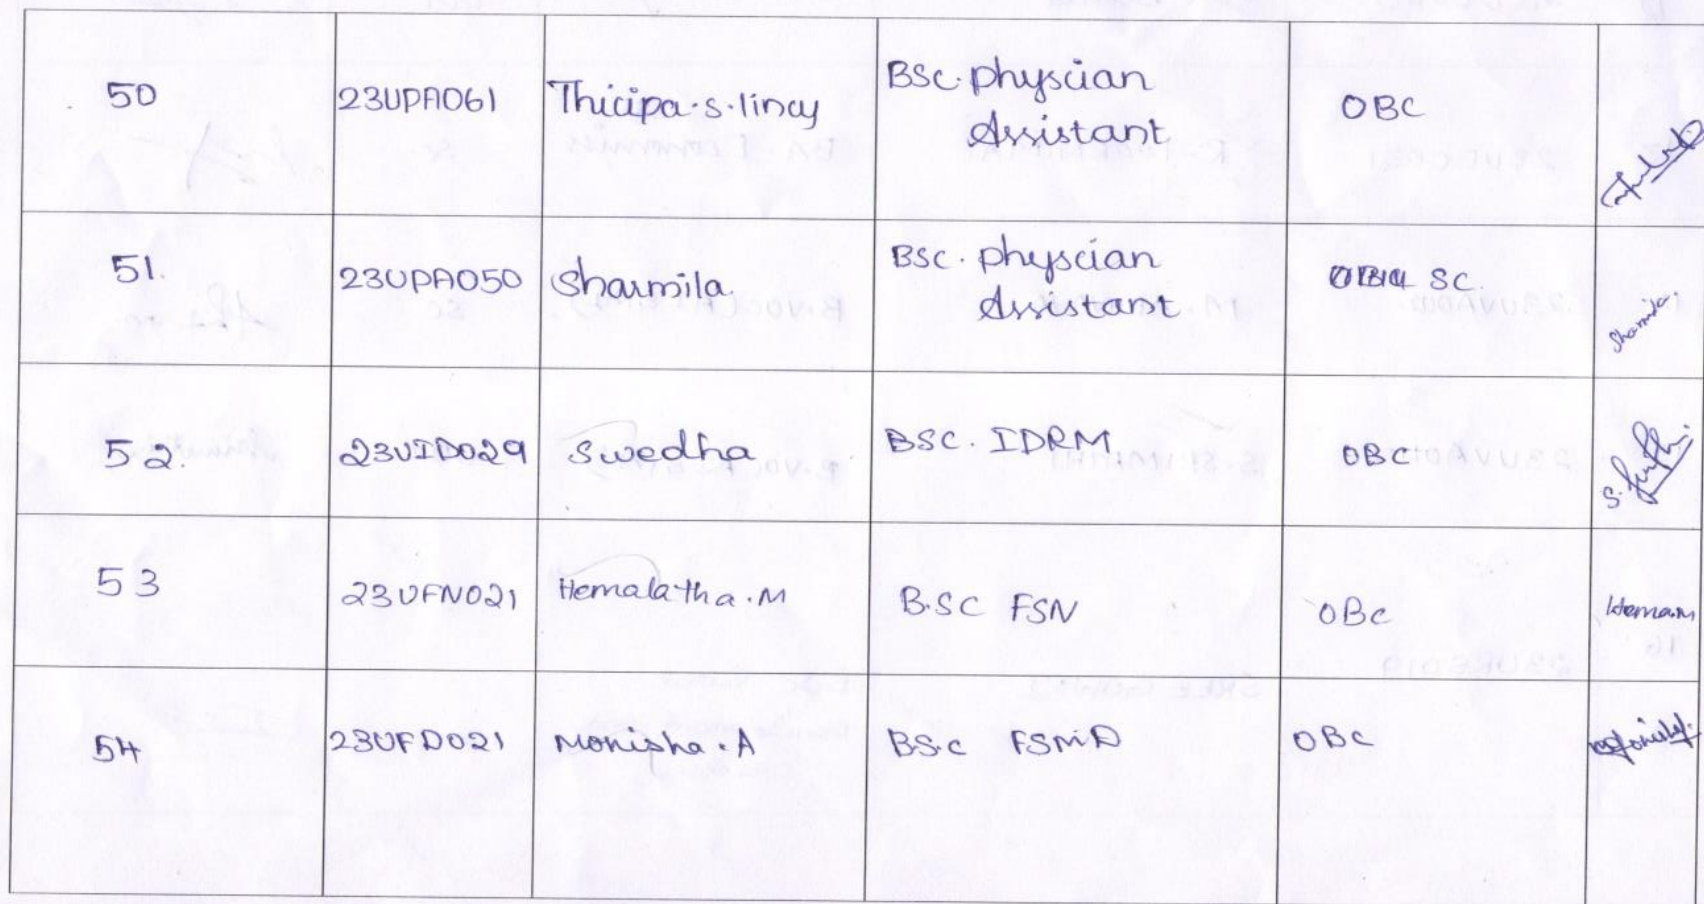 50 23UPA061 Thicipa.s.lincy BSc. physcian OBC
Assistant
51. 23UPA050 Sharmila BSc. physcian SC
Assistant Sharmila
52. 23UID029 Swedha BSC. IDRM OBC
53 23UFN021 Hemalatha.M B.SC FSN OBC Hema.M
54 23UFD021 Monisha.A BS.c FSMD OBC